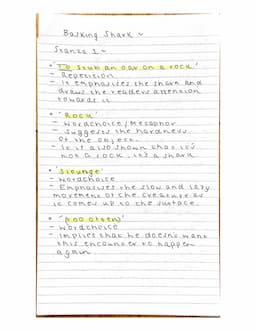 Basking Shark ~
Stanza 1 ~
• 'To stub an oar on a rock'
- Repetition
- It emphasises the shark and
draws the readers attention
towards it
• 'Rock'
- Wordchoice / Metaphor
- Suggests the hardness
of the object.
- It is also shown that it's
not a rock, it's a shark
• 'Slounge'
- Wordchoice
- Emphasises the slow and lazy
movement of the creature as
it comes up to the surface.
• '(too often)'
- Wordchoice
- Implies that he doesn't want
this encounter to happen
again.